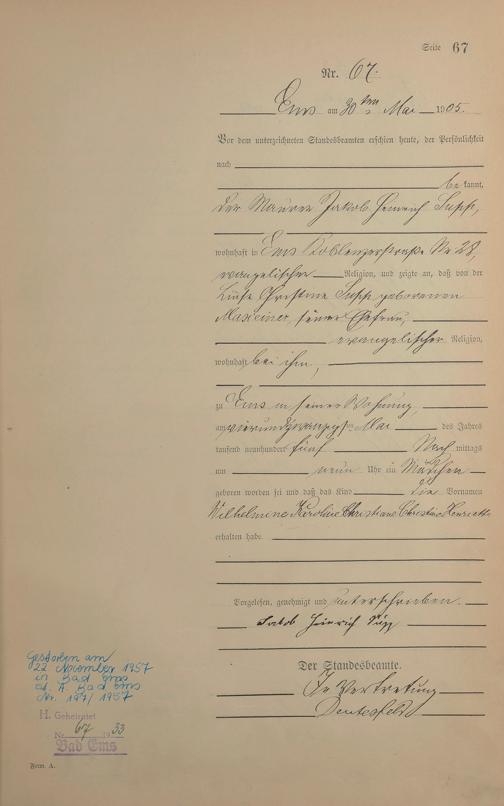 Seite 67
Nr. 67.
Ems am 30ten Mai 1905.
Vor dem unterzeichneten Standesbeamten erschien heute, der Persönlichkeit
nach
be kannt,
der Maurer Jakob Heinrich Supp,
wohnhaft in Ems Koblenzerstraße Nr 28,
evangelischer Religion, und zeigte an, daß von der
Luise Christine Supp, geborenen
seiner Ehefrau,
evangelischer Religion,
wohnhaft bei ihm,
zu Ems in seiner Wohnung,
am vierundzwanzigsten Mai des Jahres
tausend neunhundert fünf Nach mittags
um neun Uhr ein Mädchen
geboren worden sei und daß das Kind die Vornamen
Wilhelmine Karoline Christiane Henriette
erhalten habe.
Vorgelesen, genehmigt und unterschrieben.
Jakob Heinrich Supp
Der Standesbeamte.
In Vertretung
Gestorben am
22 November 1957
in Bad Ems
St. A. Bad Ems
Nr. 147/1957
H. Geheiratet
Nr. 67 1933
Bad Ems
Form. A.